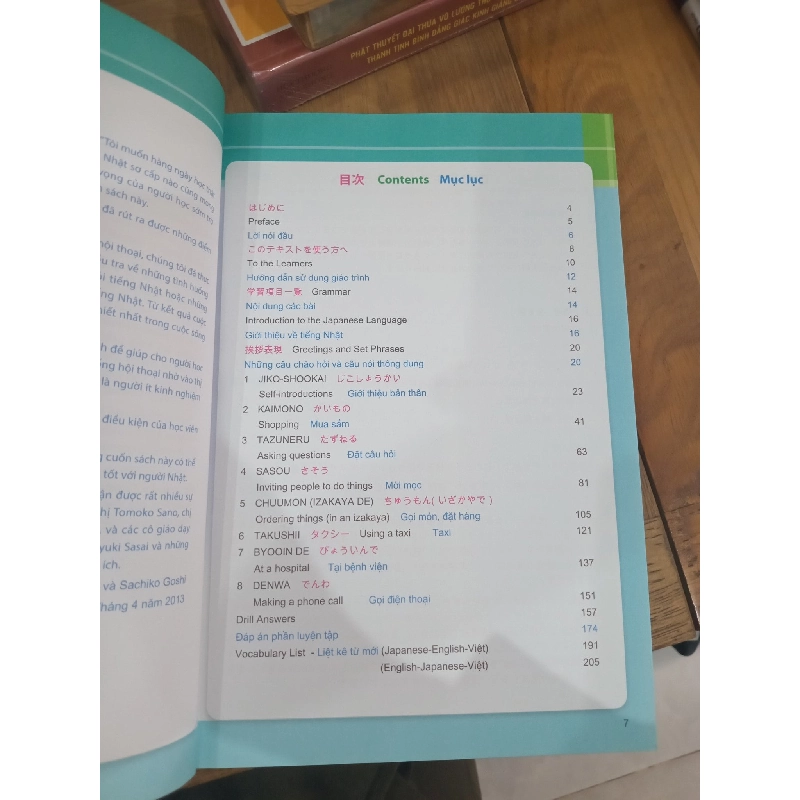 PHẬT THUYẾT ĐẠI THỪA VÔ LƯỢNG THỌ
THANH TỊNH BÌNH ĐẲNG GIÁC KINH GIẢNG
"Tôi muốn hàng ngày học
Nhật sơ cấp nào cũng mong
vọng của người học sớm
sách này.
đã rút ra được những điểm
hội thoại, chúng tôi đã thực
tra về những tình huống
tiếng Nhật hoặc những
Nhật. Từ kết quả cuộc
thiết nhất trong cuộc sống
để giúp cho người học
hội thoại nhờ vào thị
là người ít kinh nghiệm
điều kiện của học viên
cuốn sách này có thể
tốt với người Nhật.
được rất nhiều sự
Tomoko Sano, chị
và các cô giáo dạy
Sasai và những
ích.
và Sachiko Goshi
tháng 4 năm 2013
目次 Contents Mục lục
はじめに 4
Preface 5
Lời nói đầu 6
このテキストを使う方へ 8
To the Learners 10
Hướng dẫn sử dụng giáo trình 12
学習項目一覧 Grammar 14
Nội dung các bài 14
Introduction to the Japanese Language 16
Giới thiệu về tiếng Nhật 16
挨拶表現 Greetings and Set Phrases 20
Những câu chào hỏi và câu nói thông dụng 20
1 JIKO-SHOOKAI じこしょうかい
Self-introductions Giới thiệu bản thân 23
2 KAIMONO かいもの
Shopping Mua sắm 41
3 TAZUNERU たずねる
Asking questions Đặt câu hỏi 63
4 SASOU さそう
Inviting people to do things Mời mọc 81
5 CHUUMON (IZAKAYA DE) ちゅうもん( いざかやで )
Ordering things (in an izakaya) Gọi món, đặt hàng 105
6 TAKUSHII タクシー Using a taxi Taxi 121
7 BYOOIN DE びょういんで
At a hospital Tại bệnh viện 137
8 DENWA でんわ
Making a phone call Gọi điện thoại 151
Drill Answers 157
Đáp án phần luyện tập 174
Vocabulary List - Liệt kê từ mới (Japanese-English-Việt) 191
(English-Japanese-Việt) 205
7